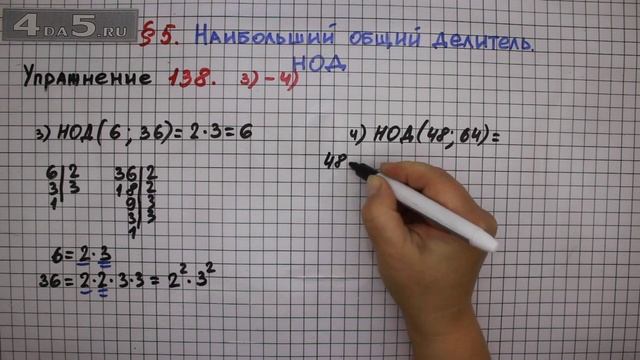 4DA5.RU
§5. Наибольший общий делитель.
НОД
Упражнение 138. 3)-4)
3) НОД(6; 36)=2·3=6
6 | 2
3 | 3
1
36 | 2
18 | 2
9 | 3
3 | 3
1
6=2·3
36=2·2·3·3=2²·3²
4) НОД(48; 64)=
48